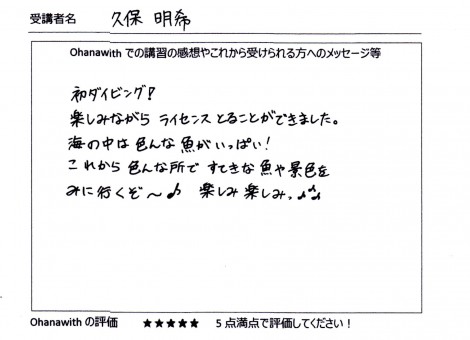 受講者名 久保 明希
Ohanawith での講習の感想やこれから受けられる方へのメッセージ等
初ダイビング!
楽しみながら ライセンス とることができました。
海の中は 色んな 魚が いっぱい!
これから 色んな所で すてきな 魚や景色を
みに行くぞ～♪ 楽しみ 楽しみ♪♪♪
Ohanawith の評価 ★★★★★ 5 点満点で評価してください!